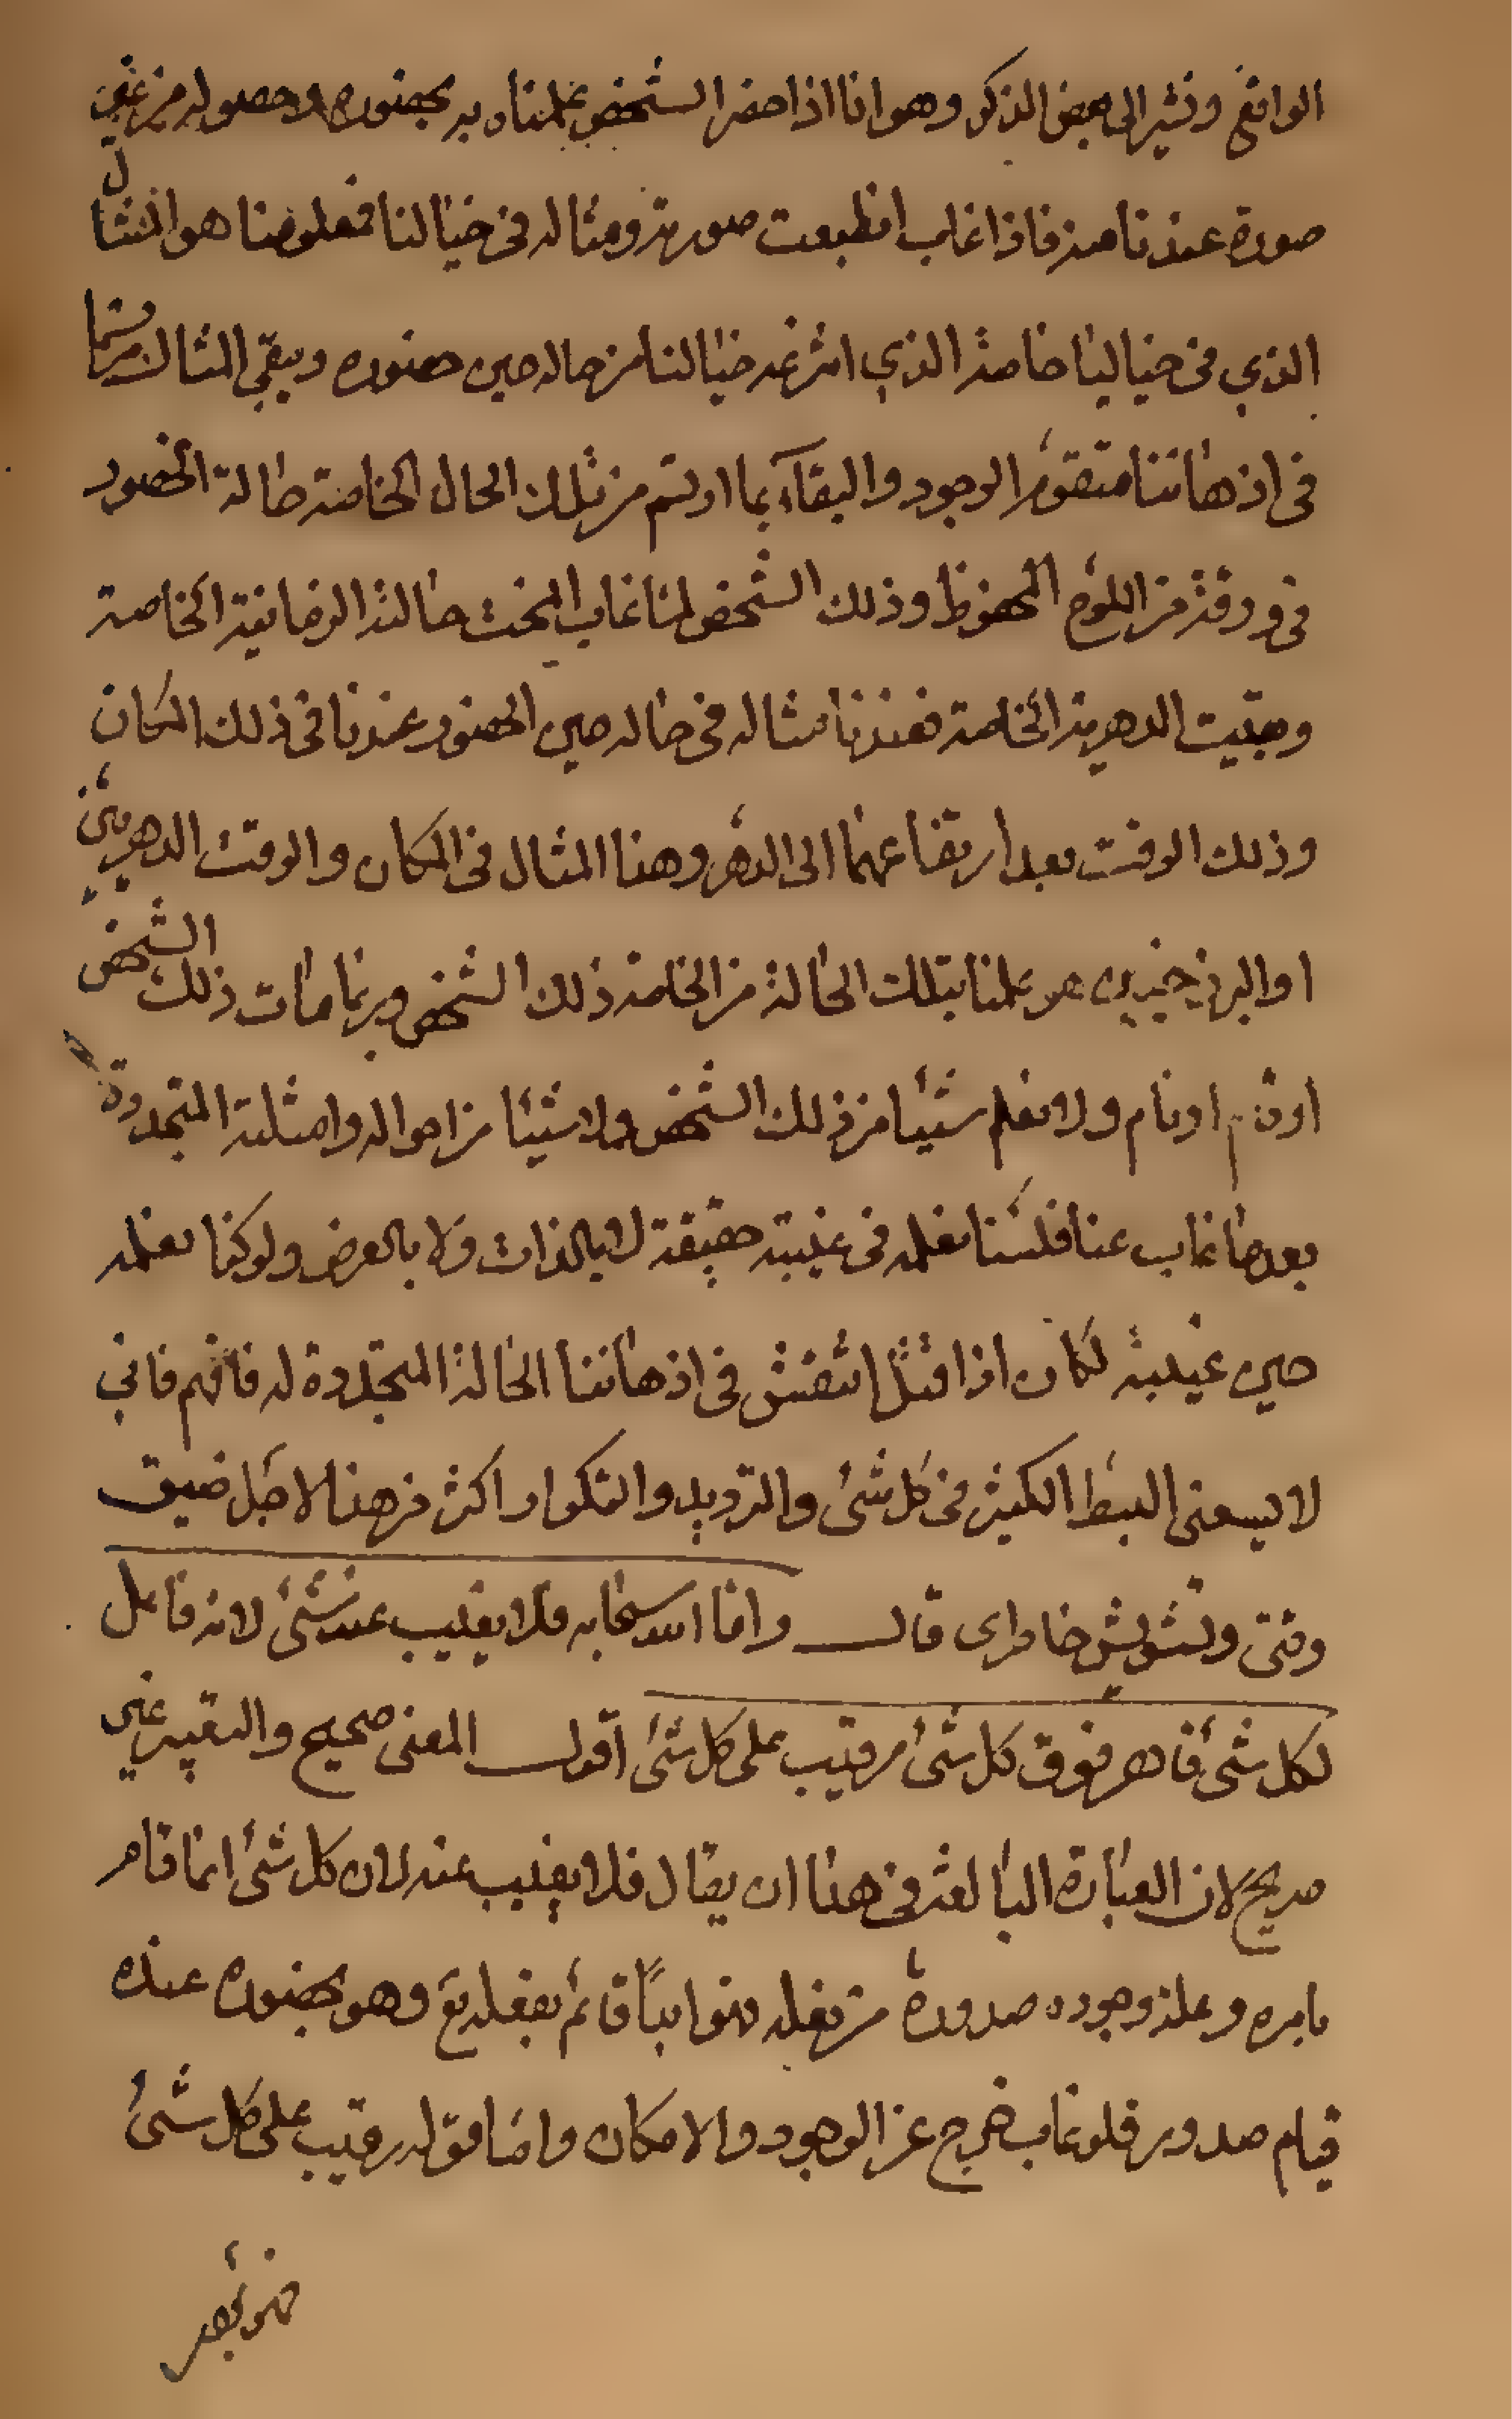 الواقع ونشير الى بعض الذكر وهو انا اذا حضر الشخص علمناه به بحضوره وحصوله من غير
صورة عندنا منه فاذا غاب انطبعت صورته ومثاله في خيالنا فمعلومنا هو المثال
الذي في خيالنا خاصة الذي انتزعه خيالنا من حاله حين حضوره ويبقى المثال مرتسما
في اذهاننا متقوم الوجود والبقاء بما ارتسم من تلك الحال الخاصة حالة الحضور
في ورقة من اللوح المحفوظ وذلك الشخص لما غاب انمحت حالته الزمانية الخاصة
وبقيت الدهرية الخاصة فعندنا مثاله في حاله حين الحضور عندنا في ذلك المكان
وذلك الوقت بعد ارتفاعهما الى الدهر وهذا المثال في المكان والوقت الدهريين
او البرزخيين هو علمنا بتلك الحالة من الخاصة ذلك الشخص وربما مات ذلك الشخص
او قام او نام ولا نعلم شيئا من ذلك الشخص ولا شيئا من احواله وامثلته المتجددة
بعد ما غاب عنا فلسنا نعلمه في غيبته حقيقة لا بالذات ولا بالعرض ولو كنا نعلمه
حين غيبته لكان اذا قتل انتقش في اذهاننا الحالة المتجددة له فافهم فاني
لا يسعني البسط الكثير في كل شئ والترديد والتكرار اكثر من هذا لاجل ضيق
وقتي وتشويش خاطري قال واما الله سبحانه فلا يغيب عنه شئ لانه فاعل
لكل شئ قاهر فوق كل شئ رقيب على كل شئ اقول المعنى صحيح والتعبير غير
صريح لان العبارة البالغة في هذا ان يقال فلا يغيب عنه لان كل شئ انما قام
بامره وعلة وجوده صدوره من فعله فهو ابداً قائم بفعله تع وهو بحضوره عنده
قيام صدور فلو غاب خرج عن الوجود والامكان واما قوله رقيب على كل شئ